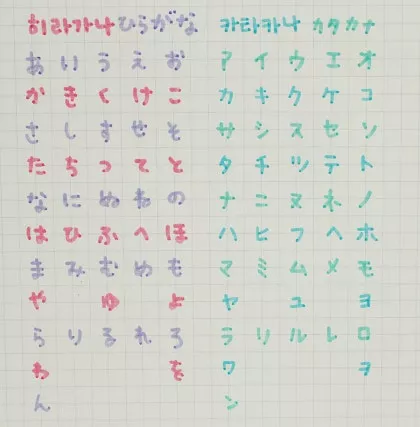 히라가나 ひらがな
あ い う え お
か き く け こ
さ し す せ そ
た ち つ て と
な に ぬ ね の
は ひ ふ へ ほ
ま み む め も
や ゆ よ
ら り る れ ろ
わ を
ん
카타카나 カタカナ
ア イ ウ エ オ
カ キ ク ケ コ
サ シ ス セ ソ
タ チ ツ テ ト
ナ ニ ヌ ネ ノ
ハ ヒ フ ヘ ホ
マ ミ ム メ モ
ヤ ユ ヨ
ラ リ ル レ ロ
ワ ヲ
ン